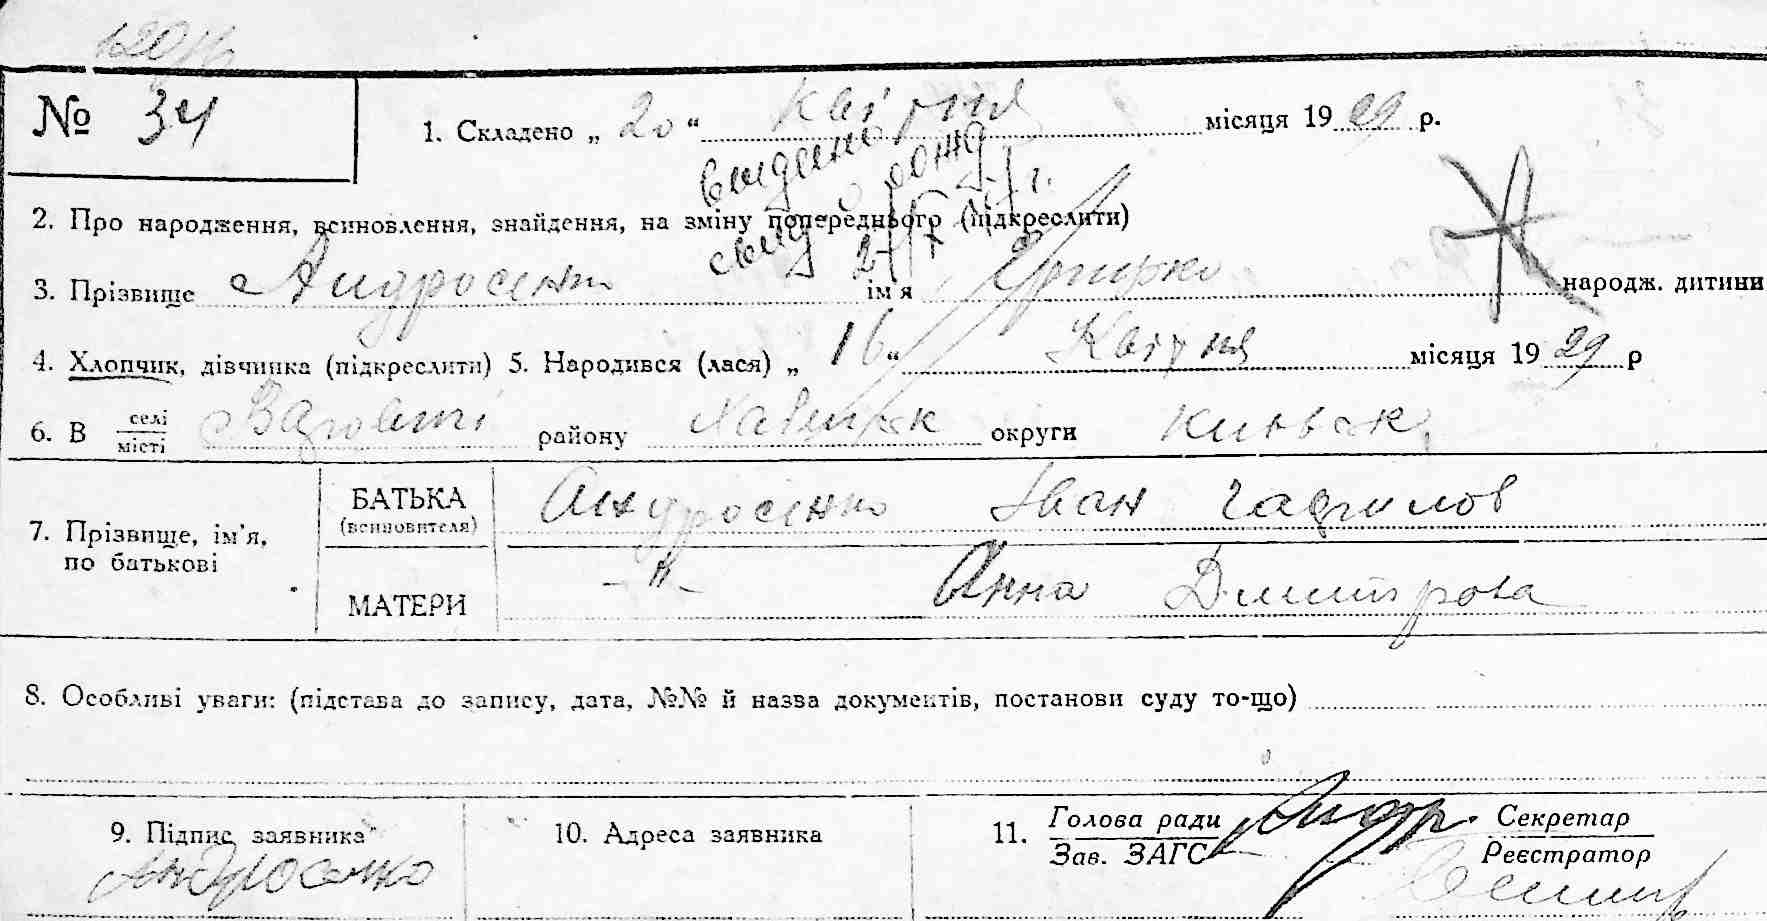 № 34
1. Складено „ 20 “ Квітня місяця 19 29 р.
выдано
2. Про народження, всиновлення, знайдення, на зміну попереднього (підкреслити)
3. Прізвище Андросенко ім'я народж. дитини
4. Хлопчик, дівчинка (підкреслити) 5. Народився (лася) „ 16 “ Квітня місяця 19 29 р
6. В селі місті району округи Київськ.
7. Прізвище, ім'я, по батькові
БАТЬКА (всиновителя) Андросенко Іван Гаврилов
МАТЕРИ -"- Анна Дмитрова
8. Особливі уваги: (підстава до запису, дата, №№ й назва документів, постанови суду то-що)
9. Підпис заявника 10. Адреса заявника 11. Голова ради Секретар
Зав. ЗАГС Реєстратор
Андросенко